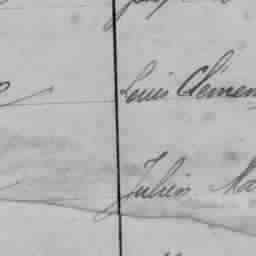 Louis Clemen
Julien Ma